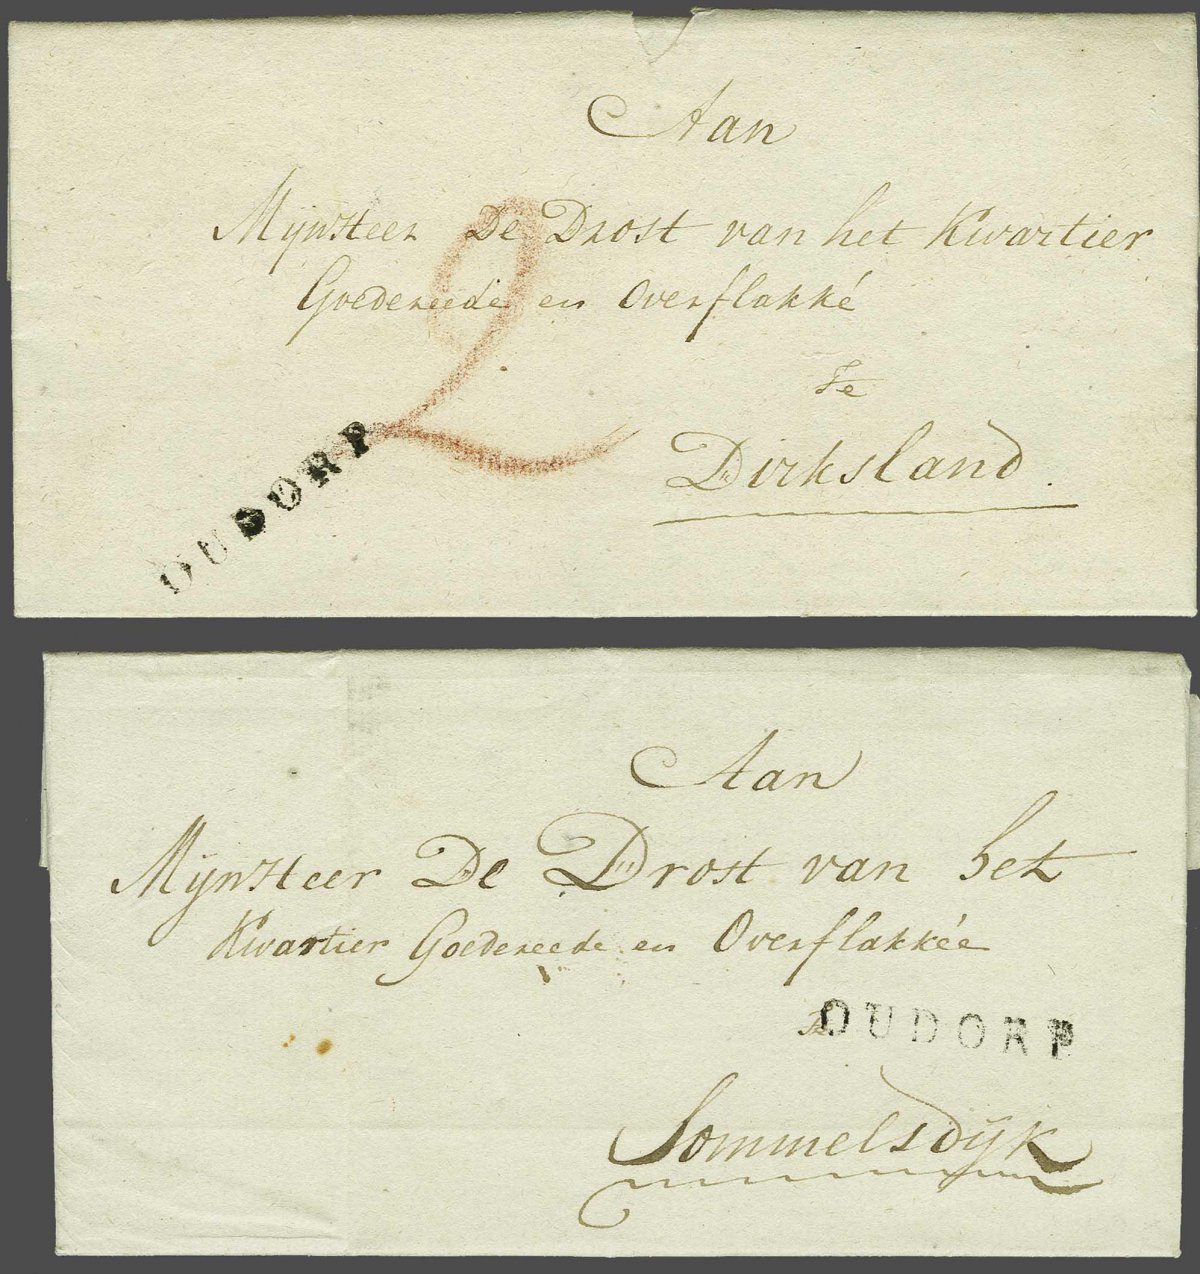 Aan
MijnHeer De Drost van het Kwartier
Goedereede en Overflakké
te
Dirksland.
2
OUDORP
Aan
MijnHeer De Drost van het
Kwartier Goedereede en Overflakkée
te
OUDORP
Sommelsdijk